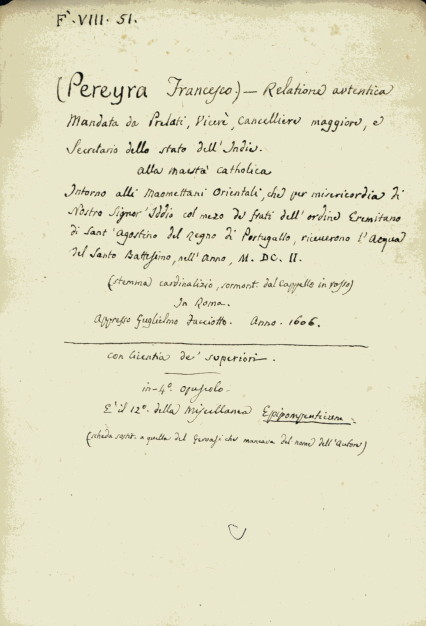 F. VIII. 51.
(Pereyra Francesco.) — Relatione autentica
Mandata da Prelati, Vicerè, Cancelliere maggiore, e
Secretario dello stato dell'Indie.
alla maestà catholica
Intorno alli Maomettani Orientali, che per misericordia di
Nostro Signor' Iddio col mezo de frati dell'ordine Eremitano
di Sant'Agostino del Regno di Portugallo, riceverono l'Acqua
del Santo Battesimo, nell'Anno, M. DC. II.
(stemma cardinalizio, sormont. dal cappello in rosso)
In Roma.
Appresso Guglielmo Facciotto. Anno. 1606.
con licentia de' superiori.
in-4°. opuscolo.
E' il 12°. della Miscellanea
(scheda sostit. a quella del Gervasi che mancava del nome dell'Autore)